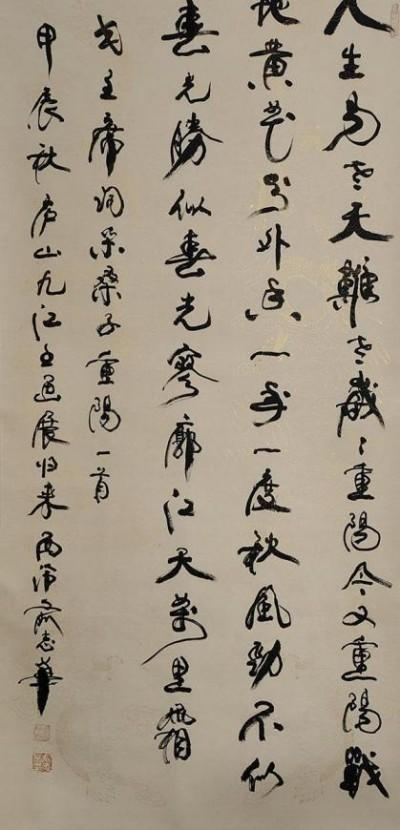 人生易老天難老歲〻重陽今又重陽戰
地黃花分外香一年一度秋風勁不似
春光勝似春光寥廓江天萬里霜
毛主席詞采桑子重陽一首
甲辰秋庐山九江主題展归来志華